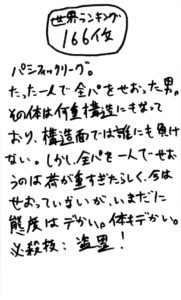 世界ランキング
166位
パシフィックリーグ。
たった一人で全パをせおった男。
その体は何重構造にもなって
おり、構造面では誰にも負け
ない。しかし、全パを一人でせお
うのは荷が重すぎたらしく、今は
せおっていないが、いまだに
態度はデかい。体もデかい。
必殺技：盗塁！